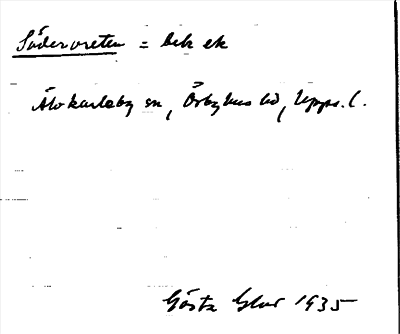 Södervreten = bek ek
Älvkarleby sn, Örbyhus hd, Upps. l.
Gösta
1935